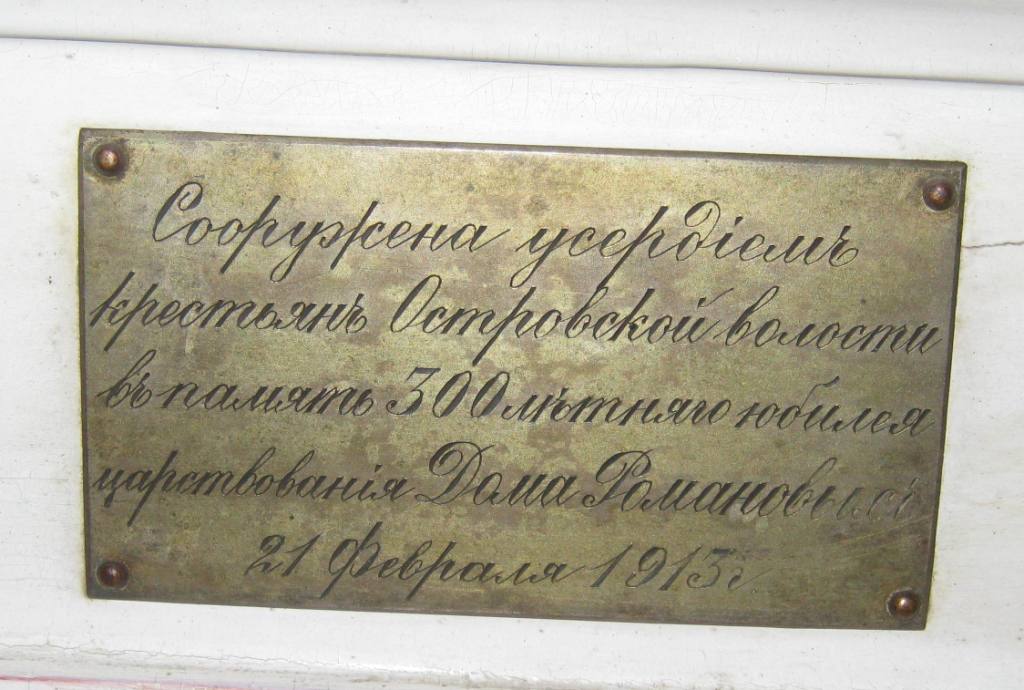 Сооружена усердіемъ
крестьянъ Островской волости
въ память 300 лѣтняго юбилея
царствованія Дома Романовыхъ
21 Февраля 1913 г.